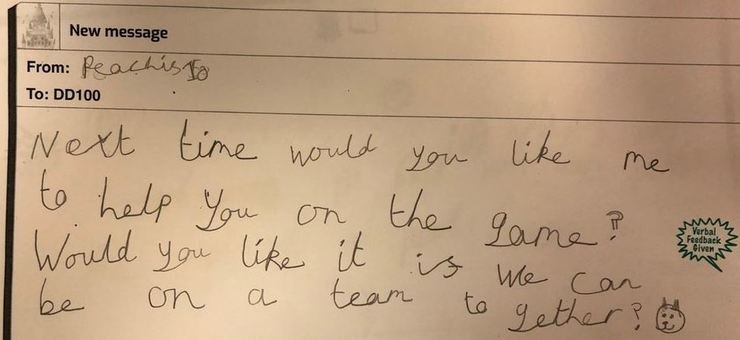 New message
From: Peachis 10
To: DD100
Next time would you like me
to help you on the game?
Would you like it is we can
be on a team to gether?
Verbal
Feedback
Given